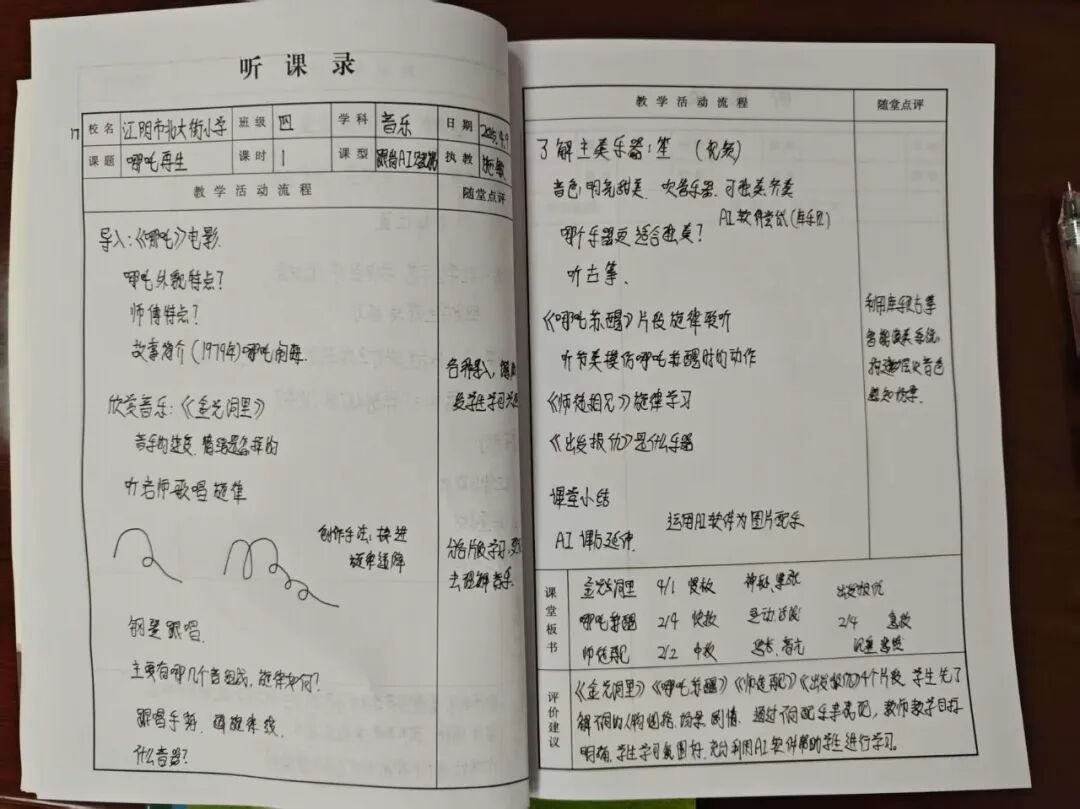 听课录
校名 江阴市北大街小学 班级 四 学科 音乐 日期 2025.4.9
课题 哪吒再生 课时 1 课型 执教 施敏
教学活动流程 随堂点评
导入:《哪吒》电影.
哪吒外貌特点?
师傅特点?
故事简介(1979年)哪吒闹海
欣赏音乐:《金光洞里》
音乐的速度、情绪是怎样的
听老师歌唱旋律
创作手法:模进
旋律
钢琴跟唱.
主要有哪几个音组成,旋律如何?
跟唱手势.画旋律线.
什么音器?
分片段学习
去理解音乐.
教学活动流程 随堂点评
了解主奏乐器:笙 (视频)
音色:明亮甜美. 吹管乐器. 可独奏齐奏
AI软件尝试(库乐队)
哪个乐器更适合独奏?
听古筝.
《哪吒苏醒》片段旋律聆听
听节奏模仿哪吒苏醒时的动作
《师徒相见》旋律学习
《出发报仇》是什么乐器
利用库乐队古筝
智能演奏系统,
音色
课堂小结
运用AI软件为图片配乐
AI课后延伸.
课堂板书
金光洞里 4/1 慢板 出发报仇
哪吒苏醒 2/4 快板 2/4 急板
师徒再见 2/2 中板
评价建议
《金光洞里》《哪吒苏醒》《师徒再见》《出发报仇》4个片段 学生先了
解不同的人物性格、场景剧情. 通过不同配乐来搭配, 教师教学目标
明确, 学生学习氛围好. 充分利用AI软件帮助学生进行学习。